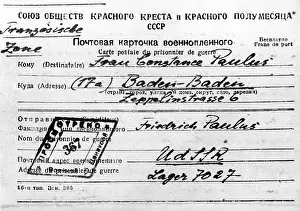 СОЮЗ ОБЩЕСТВ КРАСНОГО КРЕСТА и КРАСНОГО ПОЛУМЕСЯЦА
СССР
Französische
Zone
Почтовая карточка военнопленного
Carte postale du prisonnier de guerre
Бесплатно
Franc de port
Кому (Destinataire) Frau Constance Paulus
Куда (Adresse) (17a) Baden-Baden
Zeppelinstrasse 6
Отправитель
Friedrich Paulus
ПРОСМОТРЕНО
361
военнопленного
UdSSR
Почтовый адрес военнопленного
Adresse du prisonnier de guerre
Lager 7027